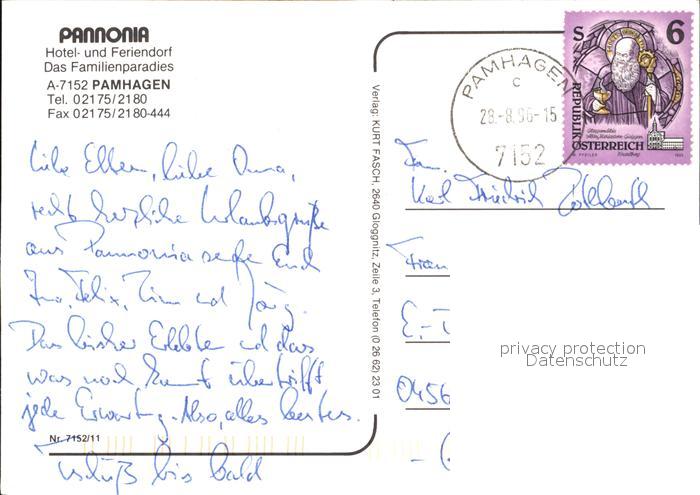 PANNONIA
Hotel- und Feriendorf
Das Familienparadies
A-7152 PAMHAGEN
Tel. 02175/2180
Fax 02175/2180-444
Liebe Eltern, liebe Oma,
recht herzliche Urlaubsgrüße
aus Pannonia senden Euch
Felix, Timm und Jörg.
Das bisher Erlebte und das
was noch kommt übertrifft
jede Erwartung. Also, alles bestens.
Tschüß bis bald
Nr. 7152/11
Verlag: KURT FASCH, 2640 Gloggnitz, Zeile 3, Telefon (0 26 62) 23 01
PAMHAGEN
C
28.-8.96-15
7152
S 6
REPUBLIK
ÖSTERREICH
Fam.
Karl Friedrich
E.-T
0456
privacy protection
Datenschutz